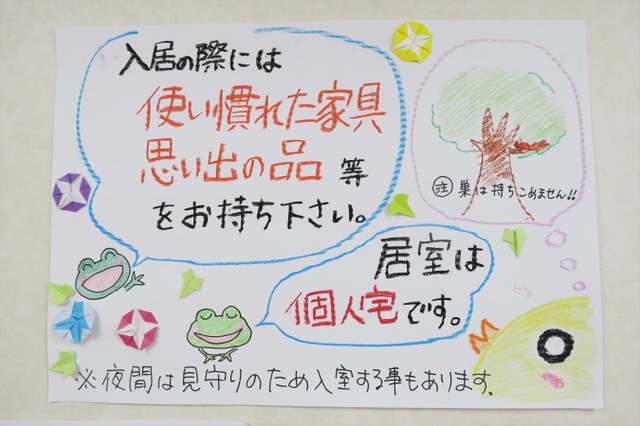 入居の際には
使い慣れた家具
思い出の品 等
をお持ち下さい。
注 巣は持ちこめません!!
居室は
個人宅です。
ピ。
※夜間は見守りのため入室する事もあります.